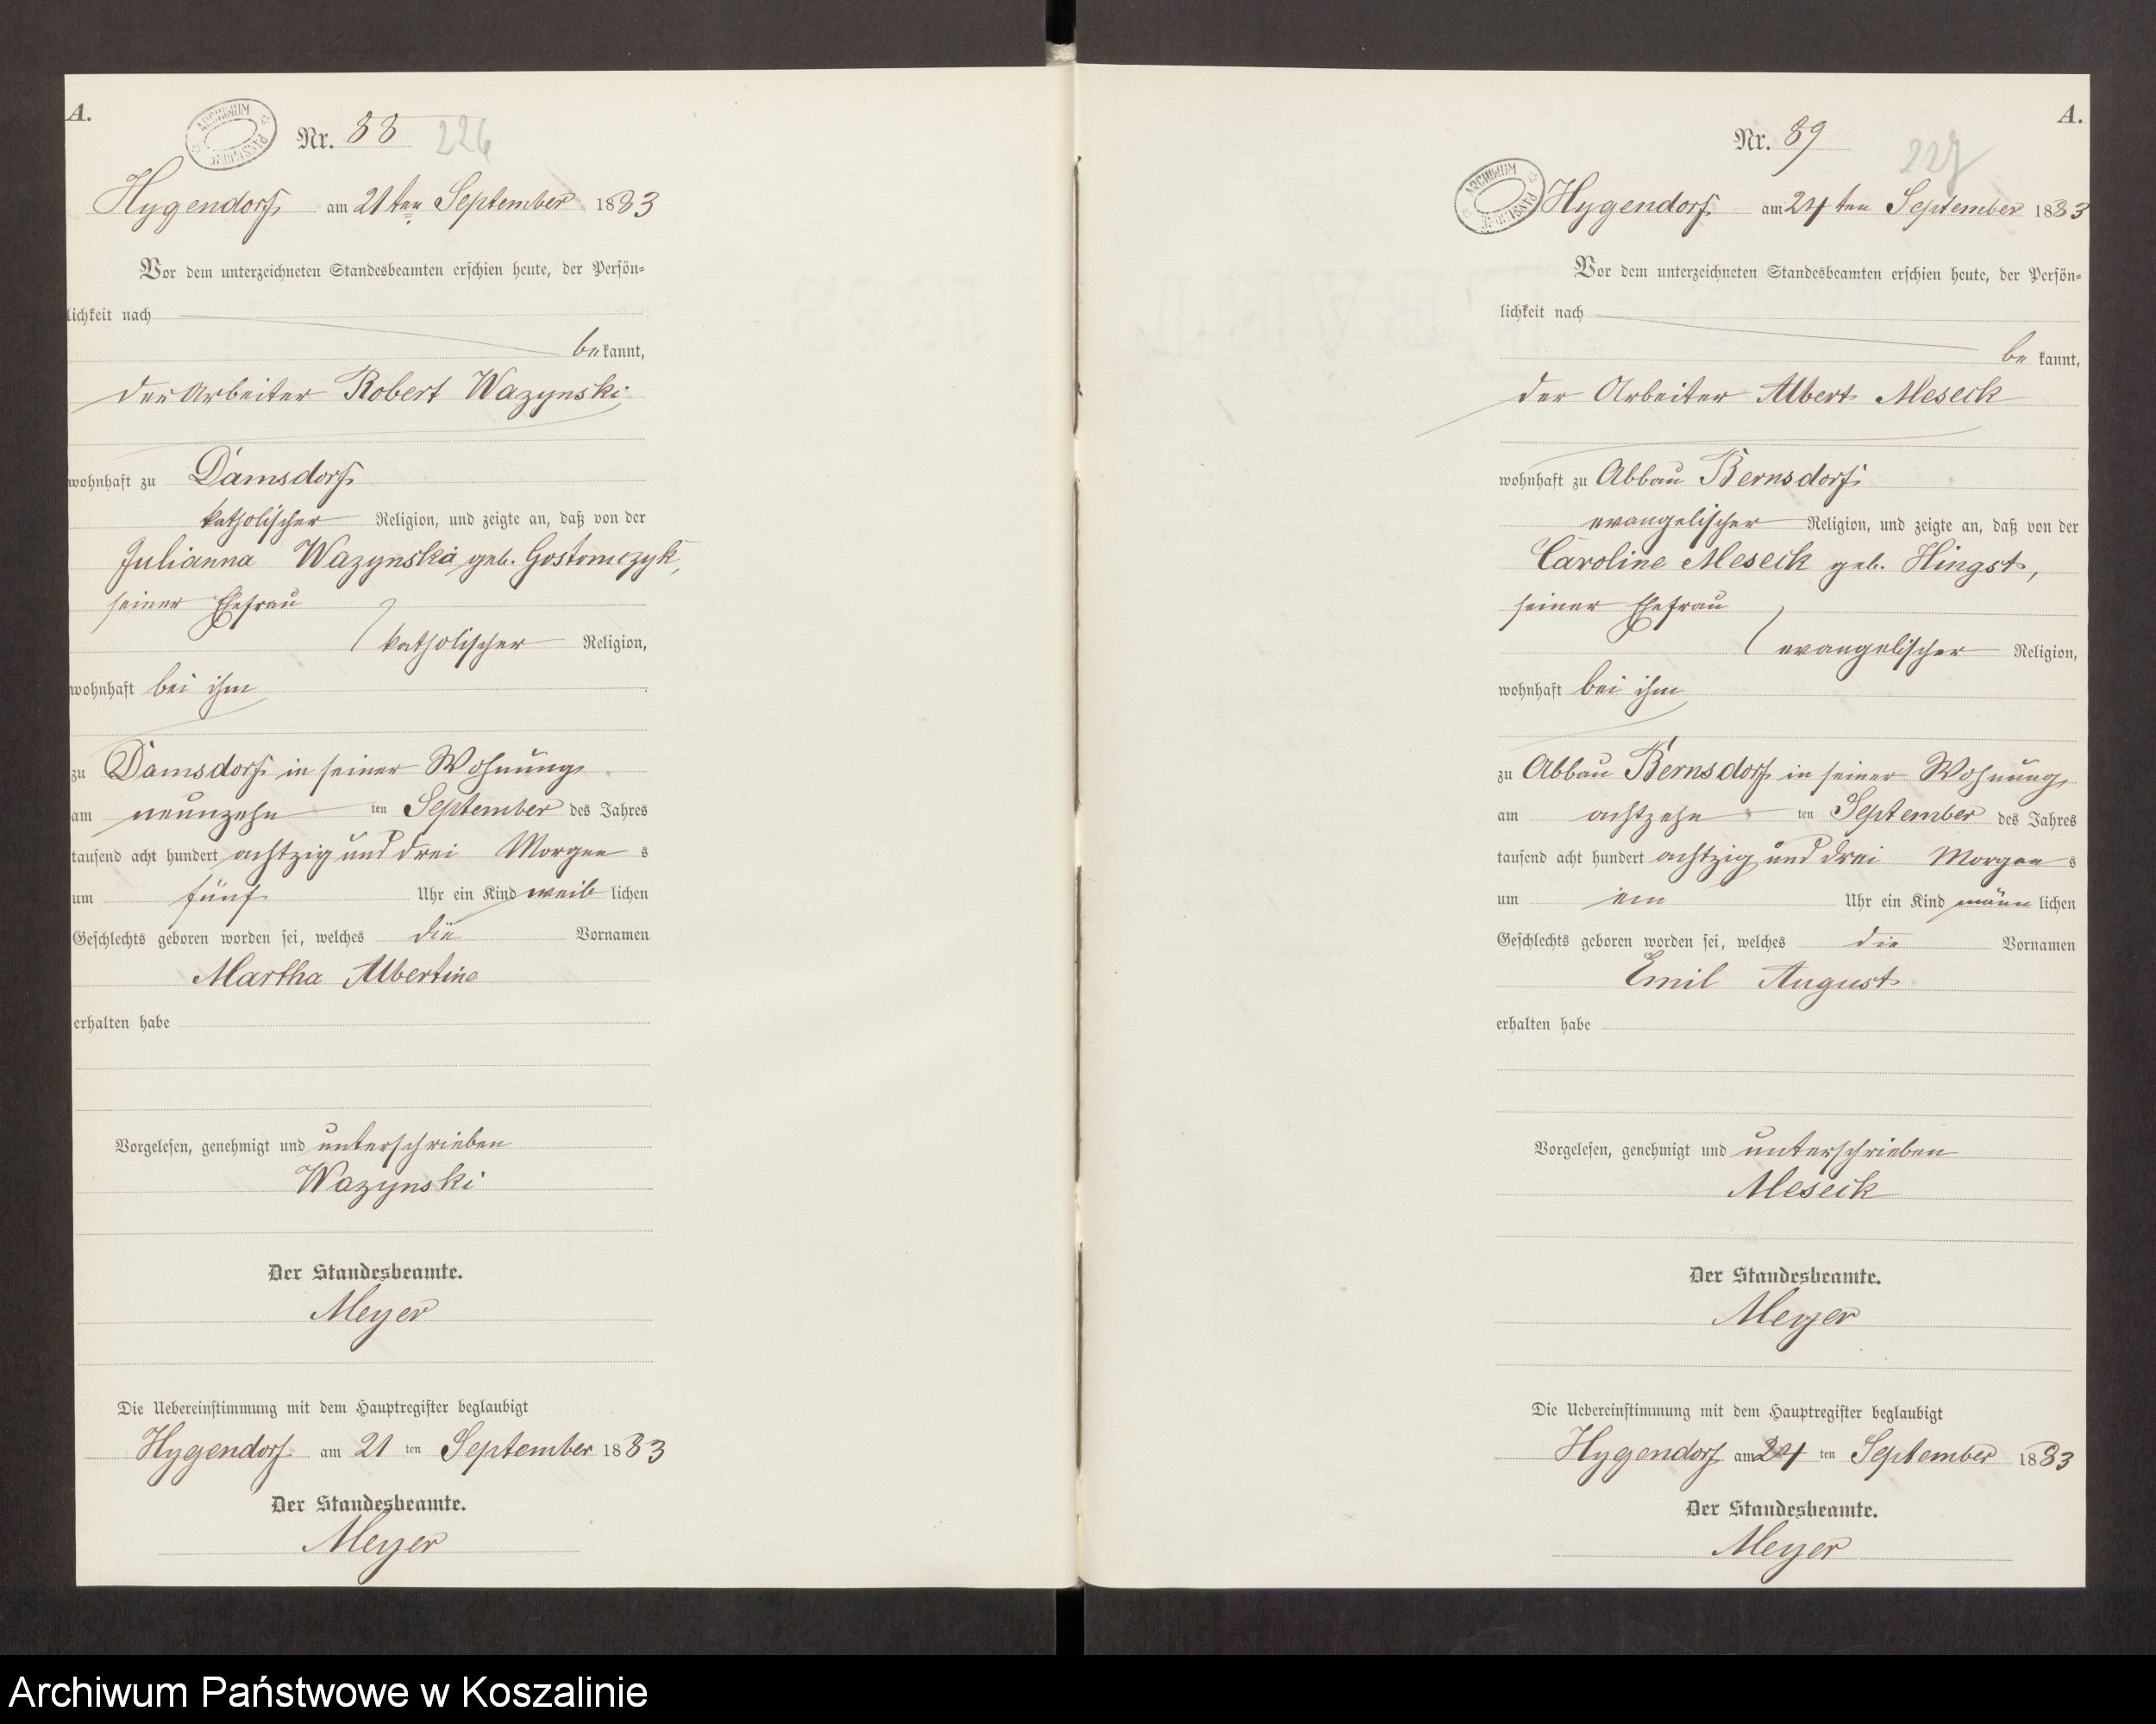 A.
ARCHIWUM PAŃSTWOWE
Nr. 88 226
Hygendorf am 21ten September 1883
Vor dem unterzeichneten Standesbeamten erschien heute, der Persön-
lichkeit nach
bekannt,
der Arbeiter Robert Wazynski
wohnhaft zu Damsdorf
katholischer Religion, und zeigte an, daß von der
Julianna Wazynska geb. Gostomczyk,
seiner Ehefrau
katholischer Religion,
wohnhaft bei ihm
zu Damsdorf in seiner Wohnung
am neunzehn ten September des Jahres
tausend acht hundert achtzig und drei Morgen s
um fünf Uhr ein Kind weib lichen
Geschlechts geboren worden sei, welches die Vornamen
Martha Albertine
erhalten habe
Vorgelesen, genehmigt und unterschrieben
Wazynski
Der Standesbeamte.
Meyer
Die Uebereinstimmung mit dem Hauptregister beglaubigt
Hygendorf am 21 ten September 1883
Der Standesbeamte.
Meyer
A.
Nr. 89 227
ARCHIWUM PAŃSTWOWE
Hygendorf am 24 ten September 1883
Vor dem unterzeichneten Standesbeamten erschien heute, der Persön-
lichkeit nach
be kannt,
der Arbeiter Albert Meseck
wohnhaft zu Abbau Bernsdorf
evangelischer Religion, und zeigte an, daß von der
Caroline Meseck geb. Hingst,
seiner Ehefrau
evangelischer Religion,
wohnhaft bei ihm
zu Abbau Bernsdorf in seiner Wohnung
am achtzehn ten September des Jahres
tausend acht hundert achtzig und drei Morgen s
um ein Uhr ein Kind männ lichen
Geschlechts geboren worden sei, welches die Vornamen
Emil August
erhalten habe
Vorgelesen, genehmigt und unterschrieben
Meseck
Der Standesbeamte.
Meyer
Die Uebereinstimmung mit dem Hauptregister beglaubigt
Hygendorf am 24 ten September 1883
Der Standesbeamte.
Meyer
Archiwum Państwowe w Koszalinie